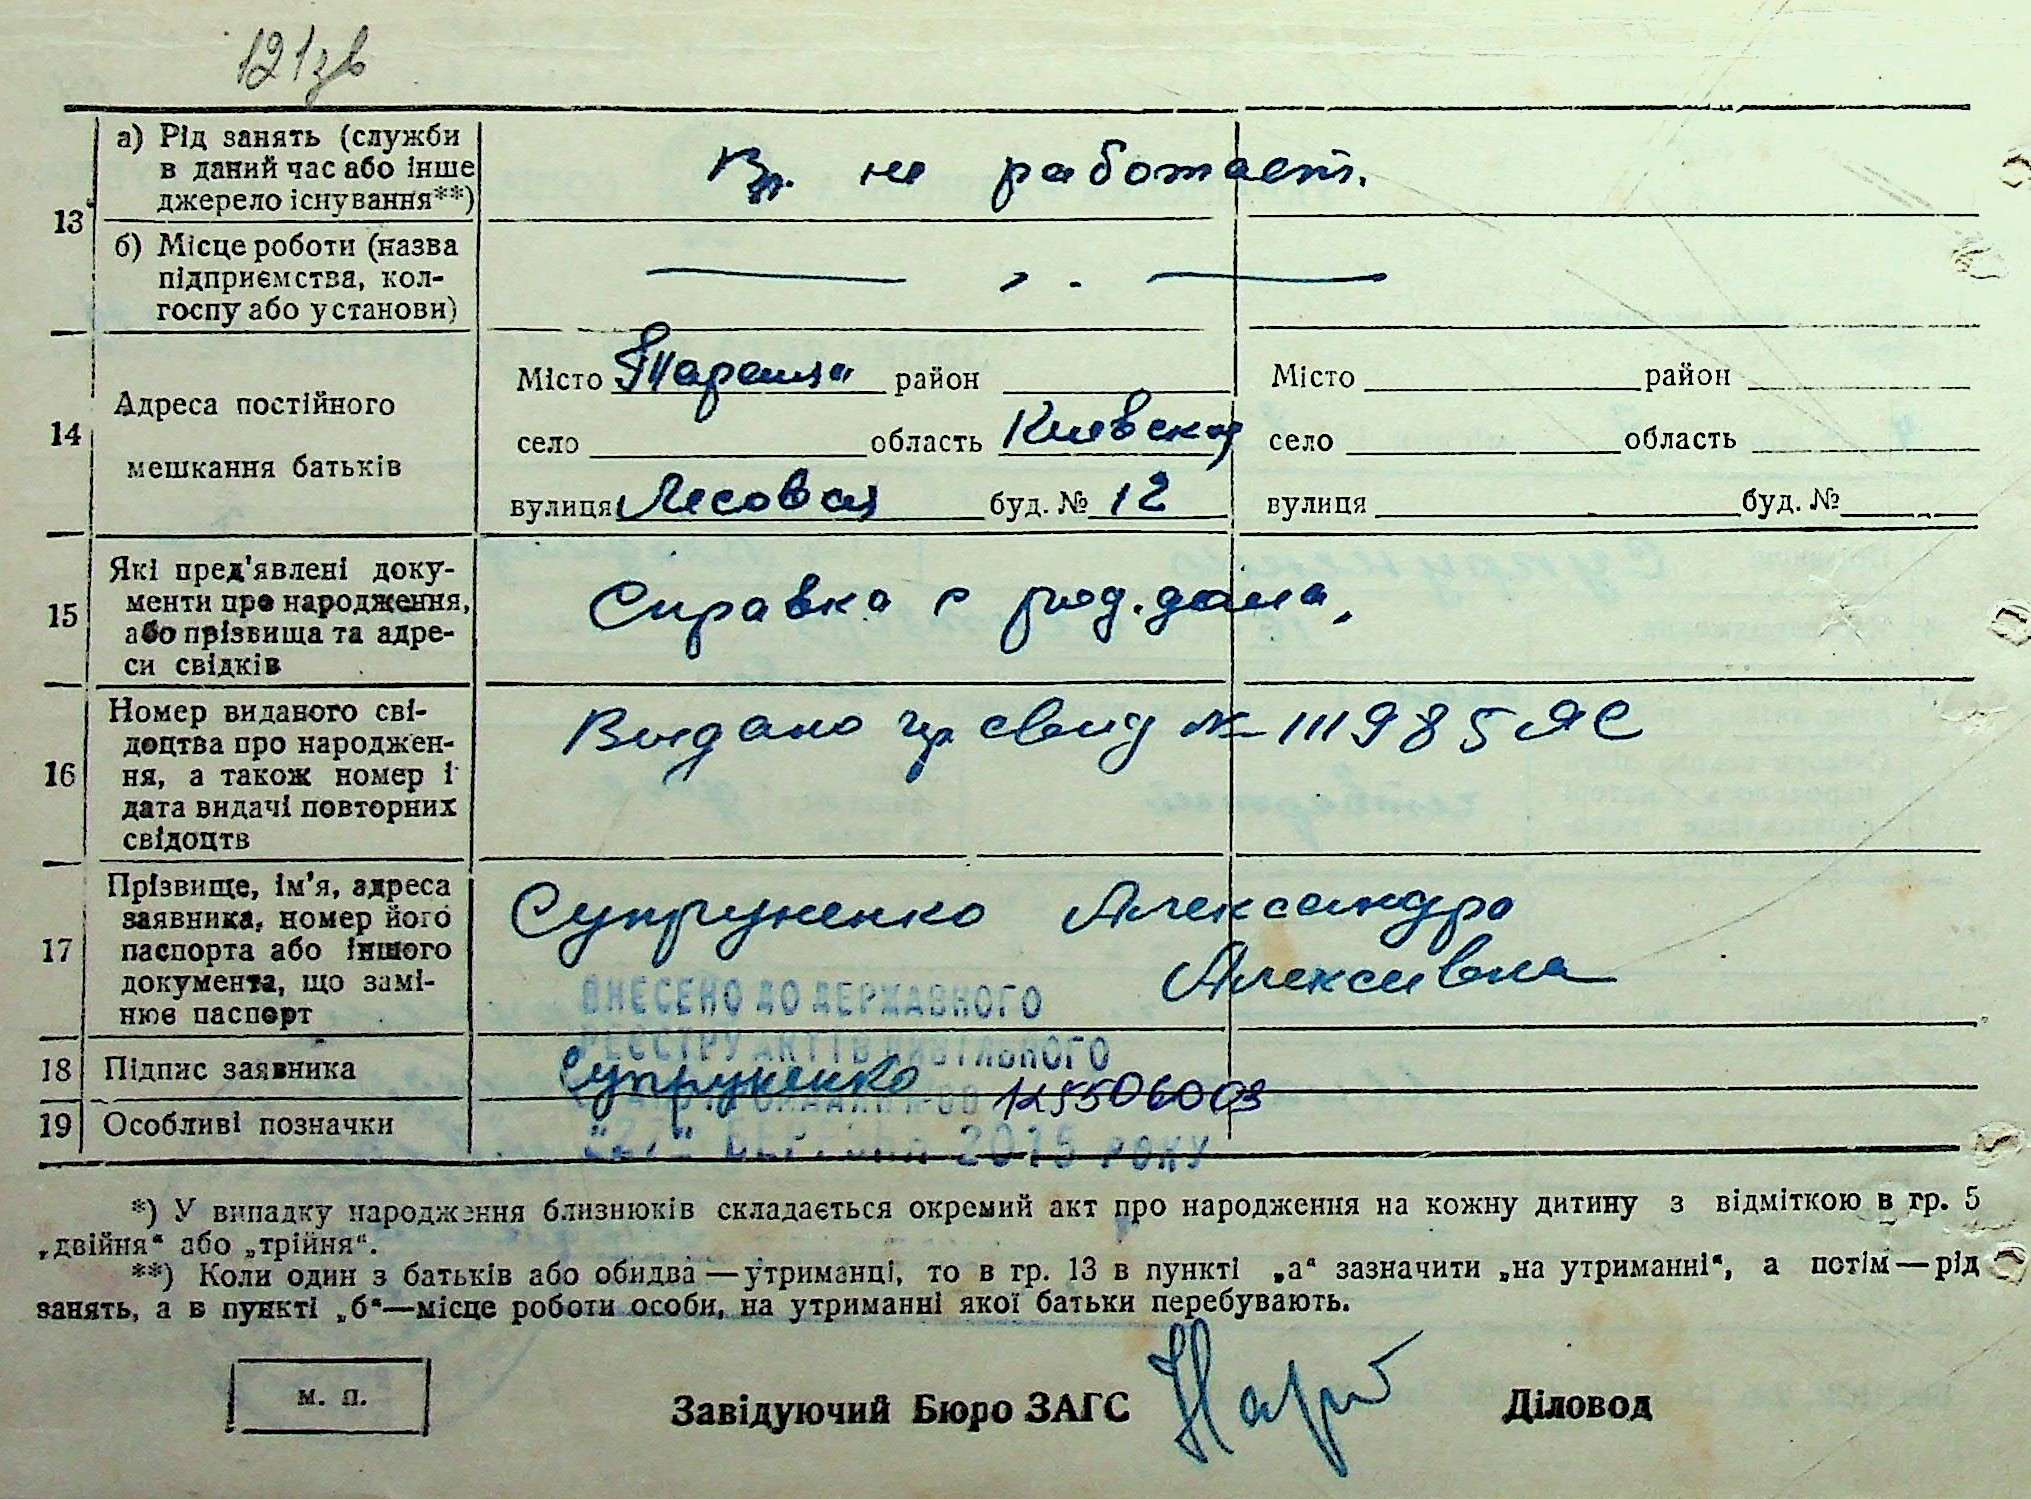 121зв
13
а) Рід занять (служби
в даний час або інше
джерело існування**)
Вр. не работает.
б) Місце роботи (назва
підприємства, кол-
госпу або установи)
14
Адреса постійного
мешкання батьків
Місто Тараща район
село область Киевская
вулиця Лесовая буд. № 12
Місто район
село область
вулиця буд. №
15
Які пред'явлені доку-
менти про народження,
або прізвища та адре-
си свідків
Справка с род.дома.
16
Номер виданого сві-
доцтва про народжен-
ня, а також номер і
дата видачі повторних
свідоцтв
Выдано свид № 111985 ЯС
17
Прізвище, ім'я, адреса
заявника, номер його
паспорта або іншого
документа, що замі-
нює паспорт
Супруненко Александра
Алексеевна
ВНЕСЕНО ДО ДЕРЖАВНОГО
РЕЄСТРУ АКТІВ ЦИВІЛЬНОГО
18 Підпис заявника
Супруненко
19 Особливі позначки
2015 РОКУ
*) У випадку народження близнюків складається окремий акт про народження на кожну дитину з відміткою в гр. 5
„двійня“ або „трійня“.
**) Коли один з батьків або обидва — утриманці, то в гр. 13 в пункті „а“ зазначити „на утриманні“, а потім — рід
занять, а в пункті „б“—місце роботи особи, на утриманні якої батьки перебувають.
м. п.
Завідуючий Бюро ЗАГС
Діловод